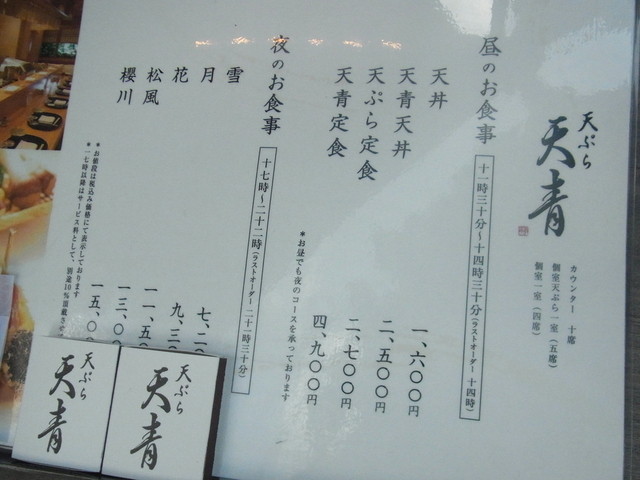 天ぷら
天青
カウンター 十席
個室天ぷら一室（五席）
個室一室（四席）
昼のお食事
十一時三十分～十四時三十分（ラストオーダー 十四時）
天丼 一、六〇〇円
天青天丼 二、五〇〇円
天ぷら定食 二、七〇〇円
天青定食 四、九〇〇円
＊お昼でも夜のコースを承っております
夜のお食事
十七時～二十二時（ラストオーダー 二十一時三十分）
雪
月 七、二
花 九、三
松風 一一、五
櫻川 一三、〇
一五、〇
＊お値段は税込み価格にて表示しております
＊一七時以降はサービス料として、別途10％頂戴させ
天ぷら
天青
天ぷら
天青